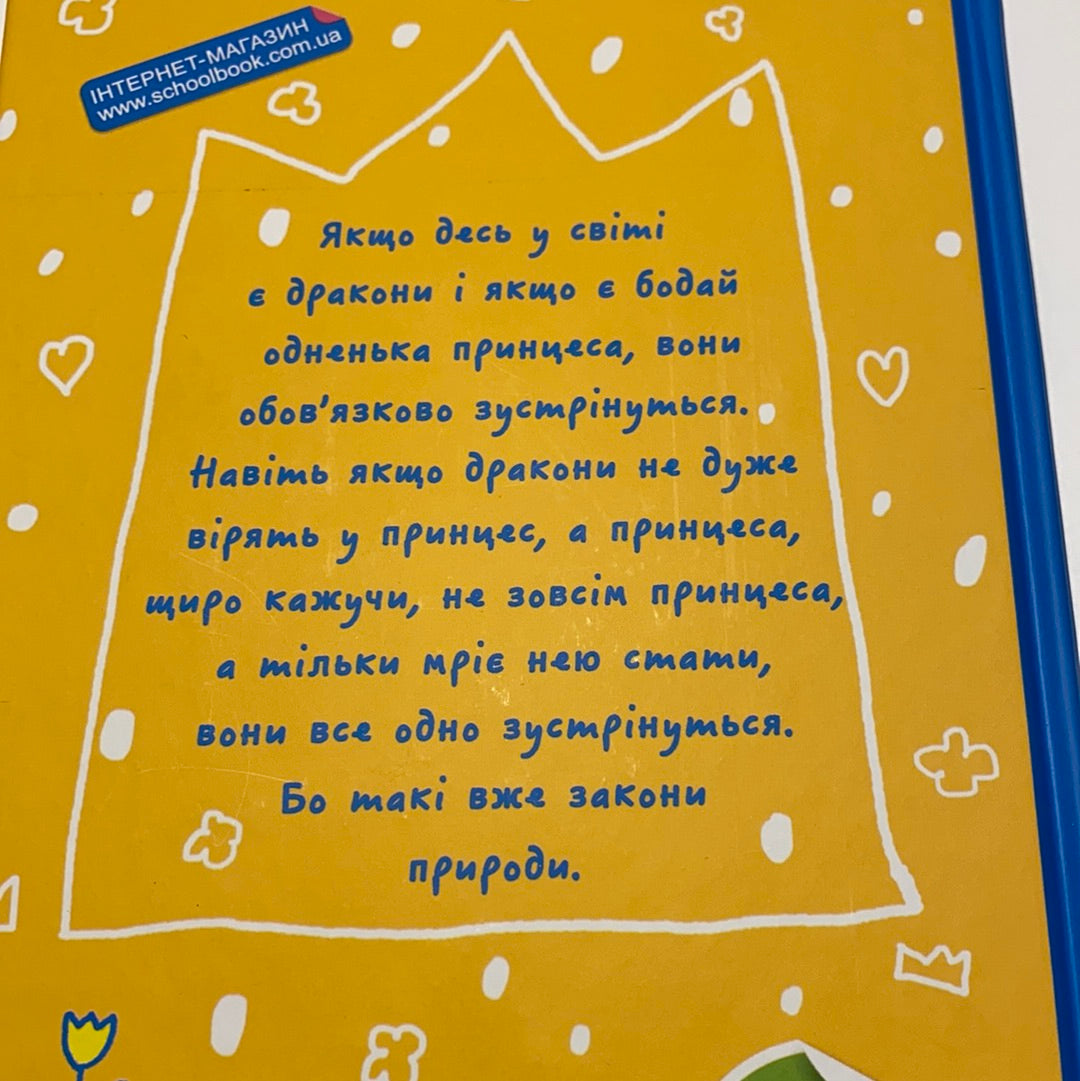 ІНТЕРНЕТ-МАГАЗИН
www.schoolbook.com.ua
Якщо десь у світі
є дракони і якщо є бодай
одненька принцеса, вони
обов'язково зустрінуться.
Навіть якщо дракони не дуже
вірять у принцес, а принцеса,
щиро кажучи, не зовсім принцеса,
а тільки мріє нею стати,
вони все одно зустрінуться.
Бо такі вже закони
природи.